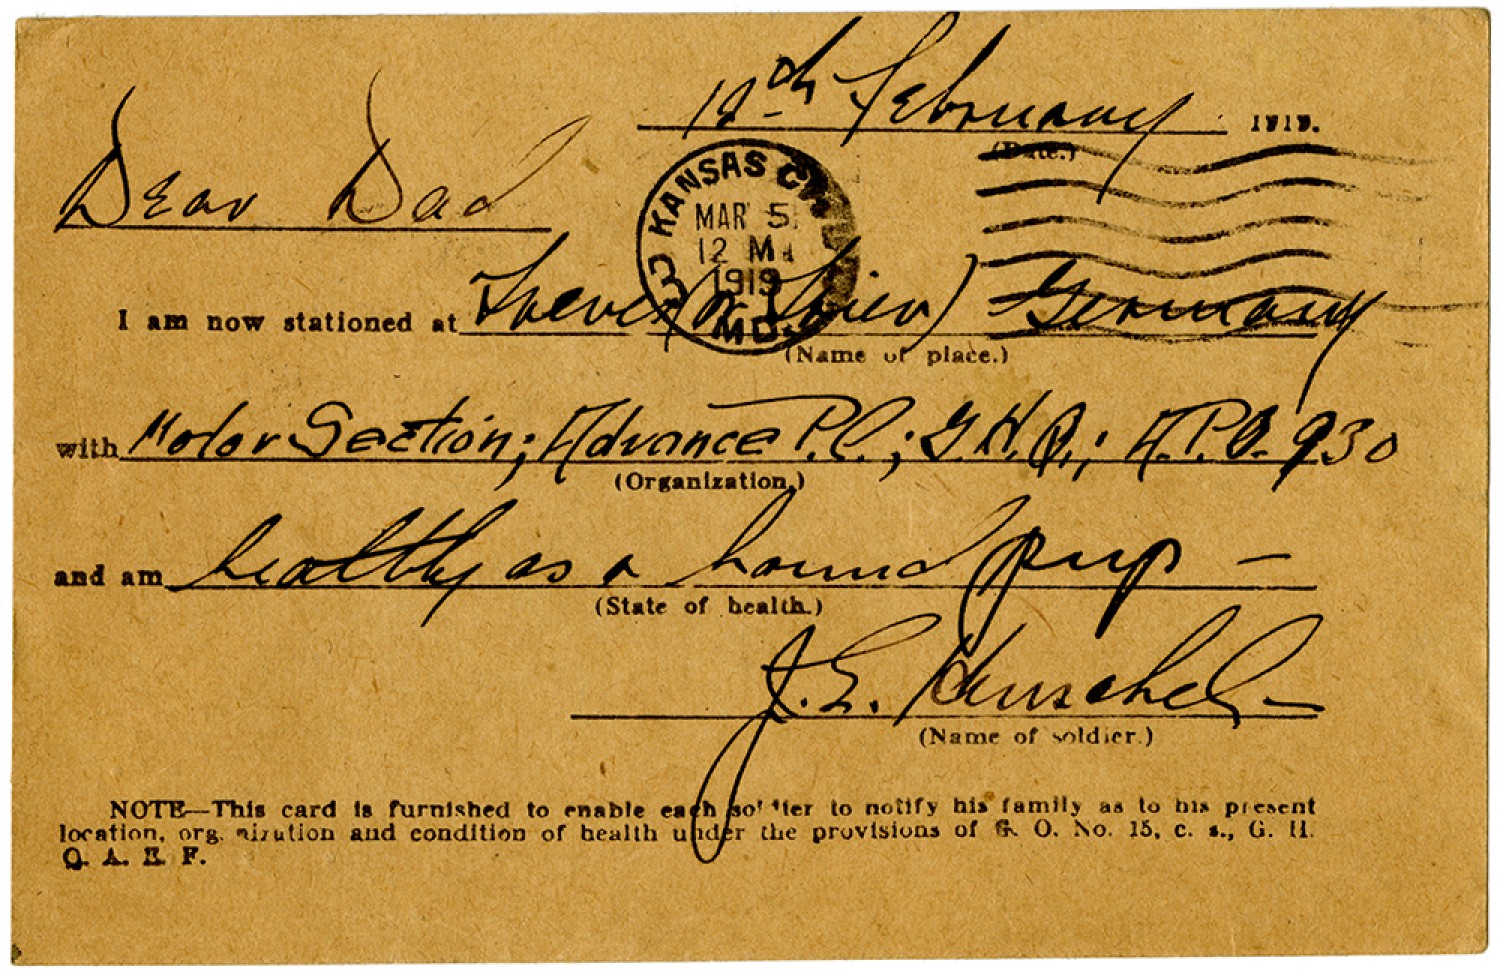 12th February 1919.
(Date.)
Dear Dad
KANSAS CITY
MAR 5
12 M
1919
3
MO.
I am now stationed at Treves (or Trier) Germany
(Name of place.)
with Motor Section; Advance P.C.; G.H.Q.; A.P.O. 930
(Organization.)
and am healthy as a hound pup —
(State of health.)
J. E. Henschel
(Name of soldier.)
NOTE—This card is furnished to enable each soldier to notify his family as to his present
location, organization and condition of health under the provisions of G. O. No. 15, c. s., G. H.
Q. A. E. F.